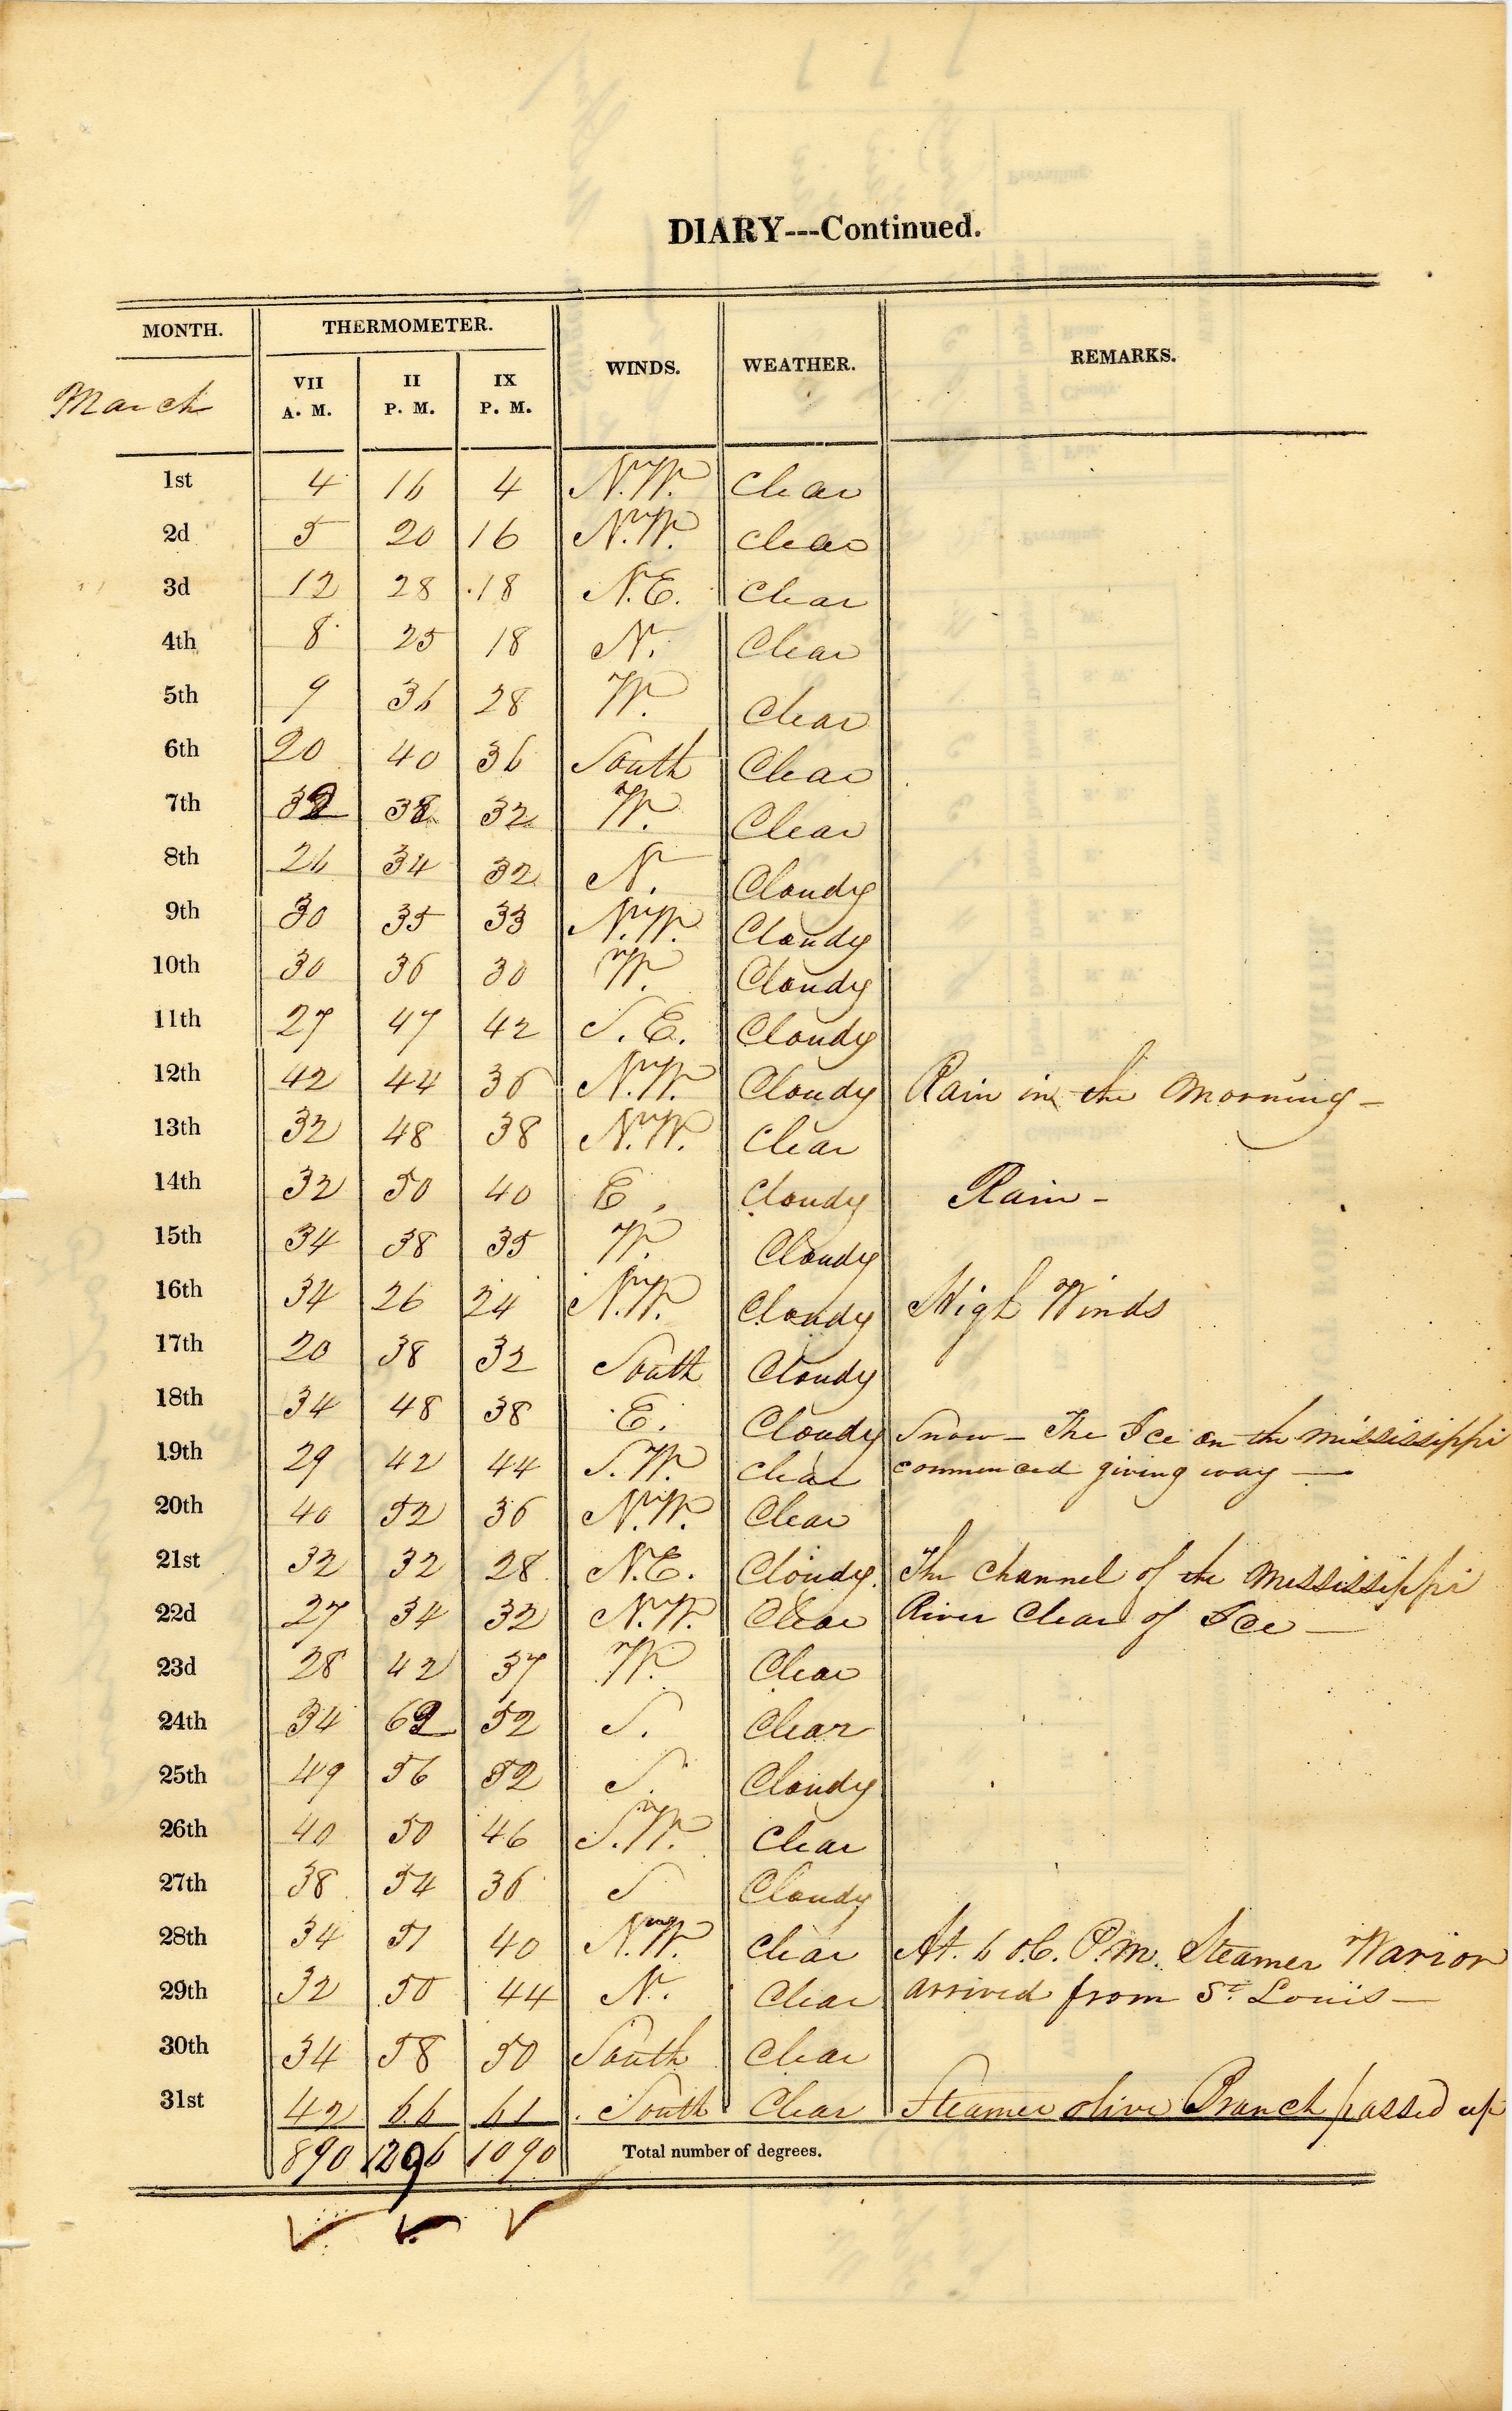 DIARY---Continued.
MONTH. THERMOMETER. WINDS. WEATHER. REMARKS.
March VII A. M. II P. M. IX P. M.
1st 4 16 4 N.W. Clear
2d 5 20 16 N.W. Clear
3d 12 28 18 N.E. Clear
4th 8 25 18 N. Clear
5th 9 36 28 W. Clear
6th 20 40 36 South Clear
7th 32 38 32 W. Clear
8th 26 34 32 N. Cloudy
9th 30 35 33 N.W. Cloudy
10th 30 36 30 W. Cloudy
11th 27 47 42 S.E. Cloudy
12th 42 44 36 N.W. Cloudy Rain in the Morning –
13th 32 48 38 N.W. Clear
14th 32 50 40 E. Cloudy Rain –
15th 34 38 35 W. Cloudy
16th 34 26 24 N.W. Cloudy High Winds
17th 20 38 32 South Cloudy
18th 34 48 38 E. Cloudy Snow – The Ice on the Mississippi
19th 29 42 44 S.W. Clear commenced giving way —
20th 40 52 36 N.W. Clear
21st 32 32 28 N.E. Cloudy. The Channel of the Mississippi
22d 27 34 32 N.W. Clear River Clear of Ice —
23d 28 42 37 W. Clear
24th 34 62 52 S. Clear
25th 49 56 52 S. Cloudy
26th 40 50 46 S.W. Clear
27th 38 54 36 S Cloudy
28th 34 51 40 N.W. Clear At. 6 o.C. P.M. Steamer Warior
29th 32 50 44 N. Clear arrived from St. Louis —
30th 34 58 50 South Clear
31st 42 66 61 South Clear Steamer olive Branch passed up
890 1296 1090 Total number of degrees.